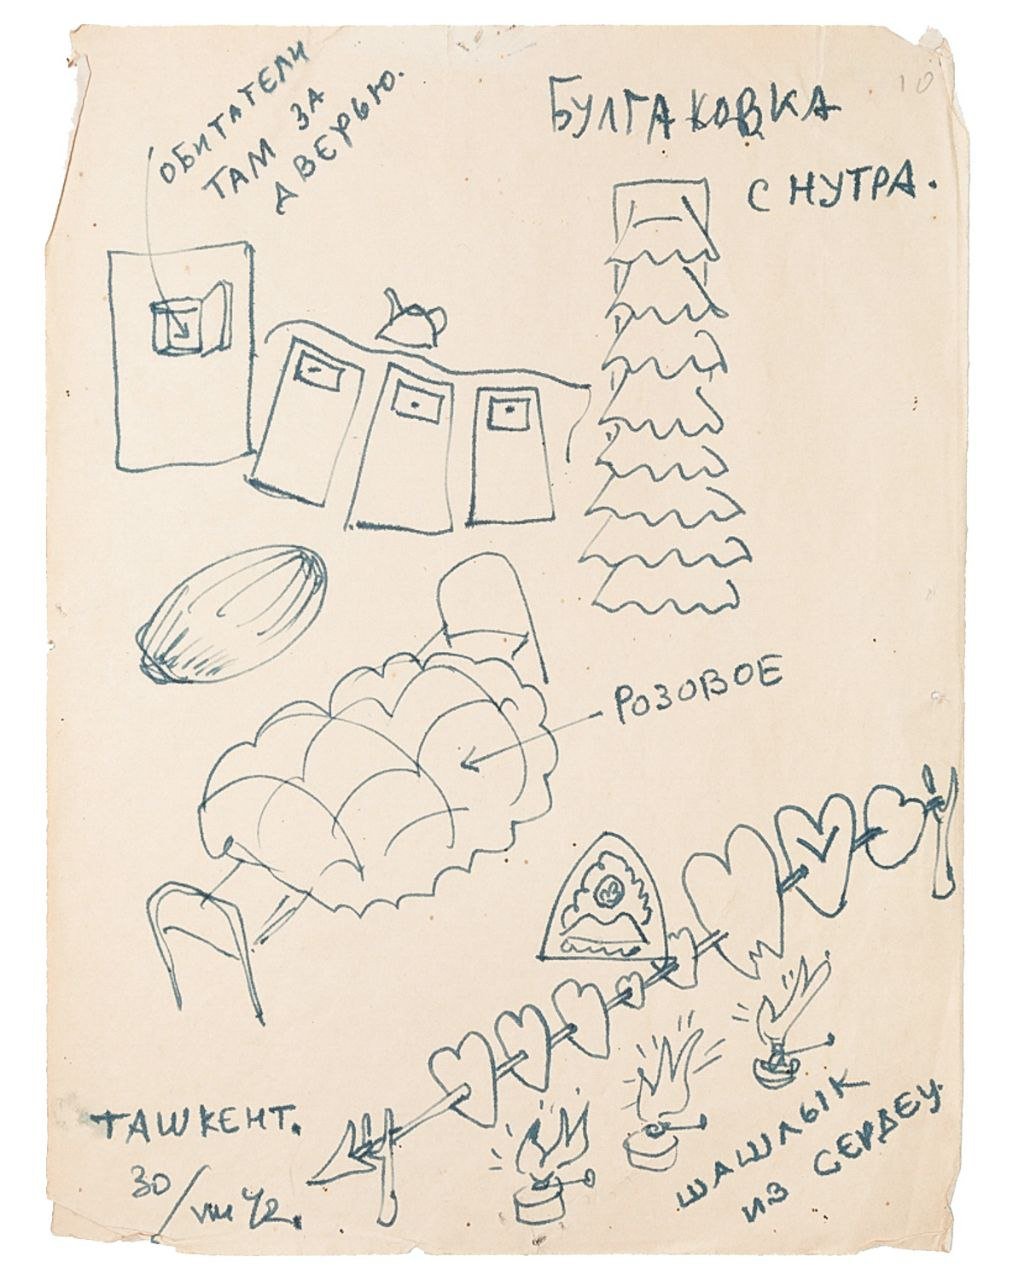 ОБИТАТЕЛИ
ТАМ ЗА
ДВЕРЬЮ.
10
БУЛГАКОВКА
С НУТРА.
РОЗОВОЕ
ШАШЛЫК
ИЗ СЕРДЕЦ.
ТАШКЕНТ.
30/VIII 42.